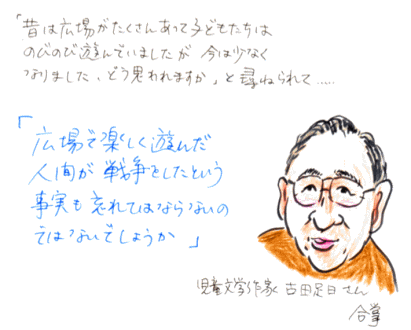 「昔は広場がたくさんあって子どもたちは
のびのび遊んでいましたが 今は少なく
なりました、どう思われますか」と尋ねられて……
「広場で楽しく遊んだ
人間が戦争をしたという
事実も忘れてはならないの
ではないでしょうか」
児童文学作家 古田足日さん
合掌